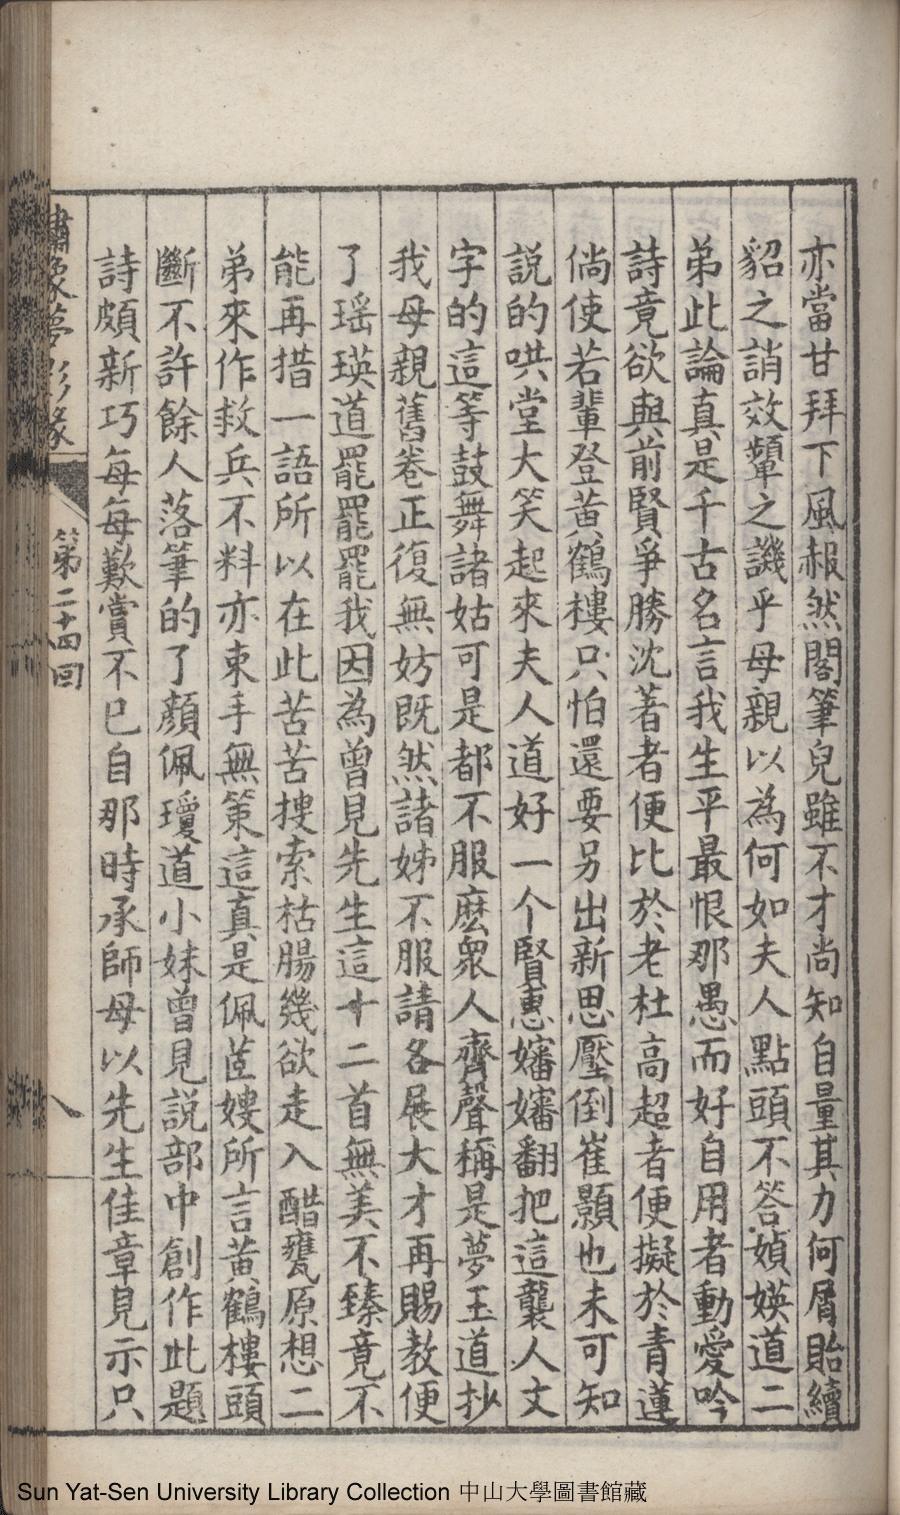 亦當甘拜下風赧然閣筆兒雖不才尚知自量其力何屑貽續
貂之誚效顰之譏乎母親以為何如夫人點頭不答媜媖道二
弟此論真是千古名言我生平最恨那愚而好自用者動愛吟
詩竟欲與前賢爭勝沈著者便比於老杜高超者便擬於青蓮
倘使若輩登黃鶴樓只怕還要另出新思壓倒崔顥也未可知
說的哄堂大笑起來夫人道好一个賢惠嬸嬸翻把這襲人文
字的這等鼓舞諸姑可是都不服麽衆人齊聲稱是夢玉道抄
我母親舊卷正復無妨既然諸姊不服請各展大才再賜教便
了瑶瑛道罷罷罷我因為曾見先生這十二首無美不臻竟不
能再措一語所以在此苦苦搜索枯腸幾欲走入醋甕原想二
弟來作救兵不料亦束手無策這真是佩茝嫂所言黃鶴樓頭
斷不許餘人落筆的了顏佩瓊道小妹曾見説部中創作此題
詩頗新巧每每歎賞不已自那時承師母以先生佳章見示只
繡像夢影緣
第二十四回
八
Sun Yat-Sen University Library Collection 中山大學圖書館藏